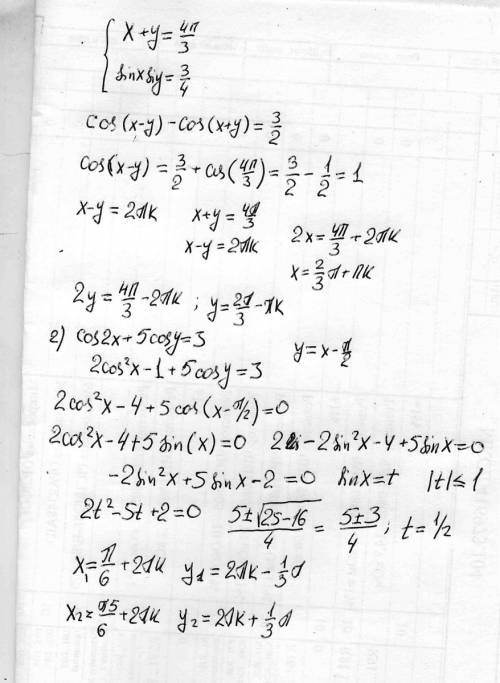 { x+y = 4π/3
sinx siy = 3/4
cos(x-y) - cos(x+y) = 3/2
cos(x-y) = 3/2 + cos(4π/3) = 3/2 - 1/2 = 1
x-y = 2πk x+y = 4π/3
x-y = 2πk 2x = 4π/3 + 2πk
x = 2/3 π + πk
2y = 4π/3 - 2πk ; y = 2π/3 - πk
2) cos2x + 5cosy = 3 y = x - π/2
2cos²x - 1 + 5cosy = 3
2cos²x - 4 + 5cos(x - π/2) = 0
2cos²x - 4 + 5sin(x) = 0 2 - 2sin²x - 4 + 5sinx = 0
-2sin²x + 5sinx - 2 = 0 sinx = t |t| ≤ 1
2t² - 5t + 2 = 0 5±√25-16/4 = 5±3/4 ; t = 1/2
x₁ = π/6 + 2πk y₁ = 2πk - 1/3 π
x₂ = π5/6 + 2πk y₂ = 2πk + 1/3 π